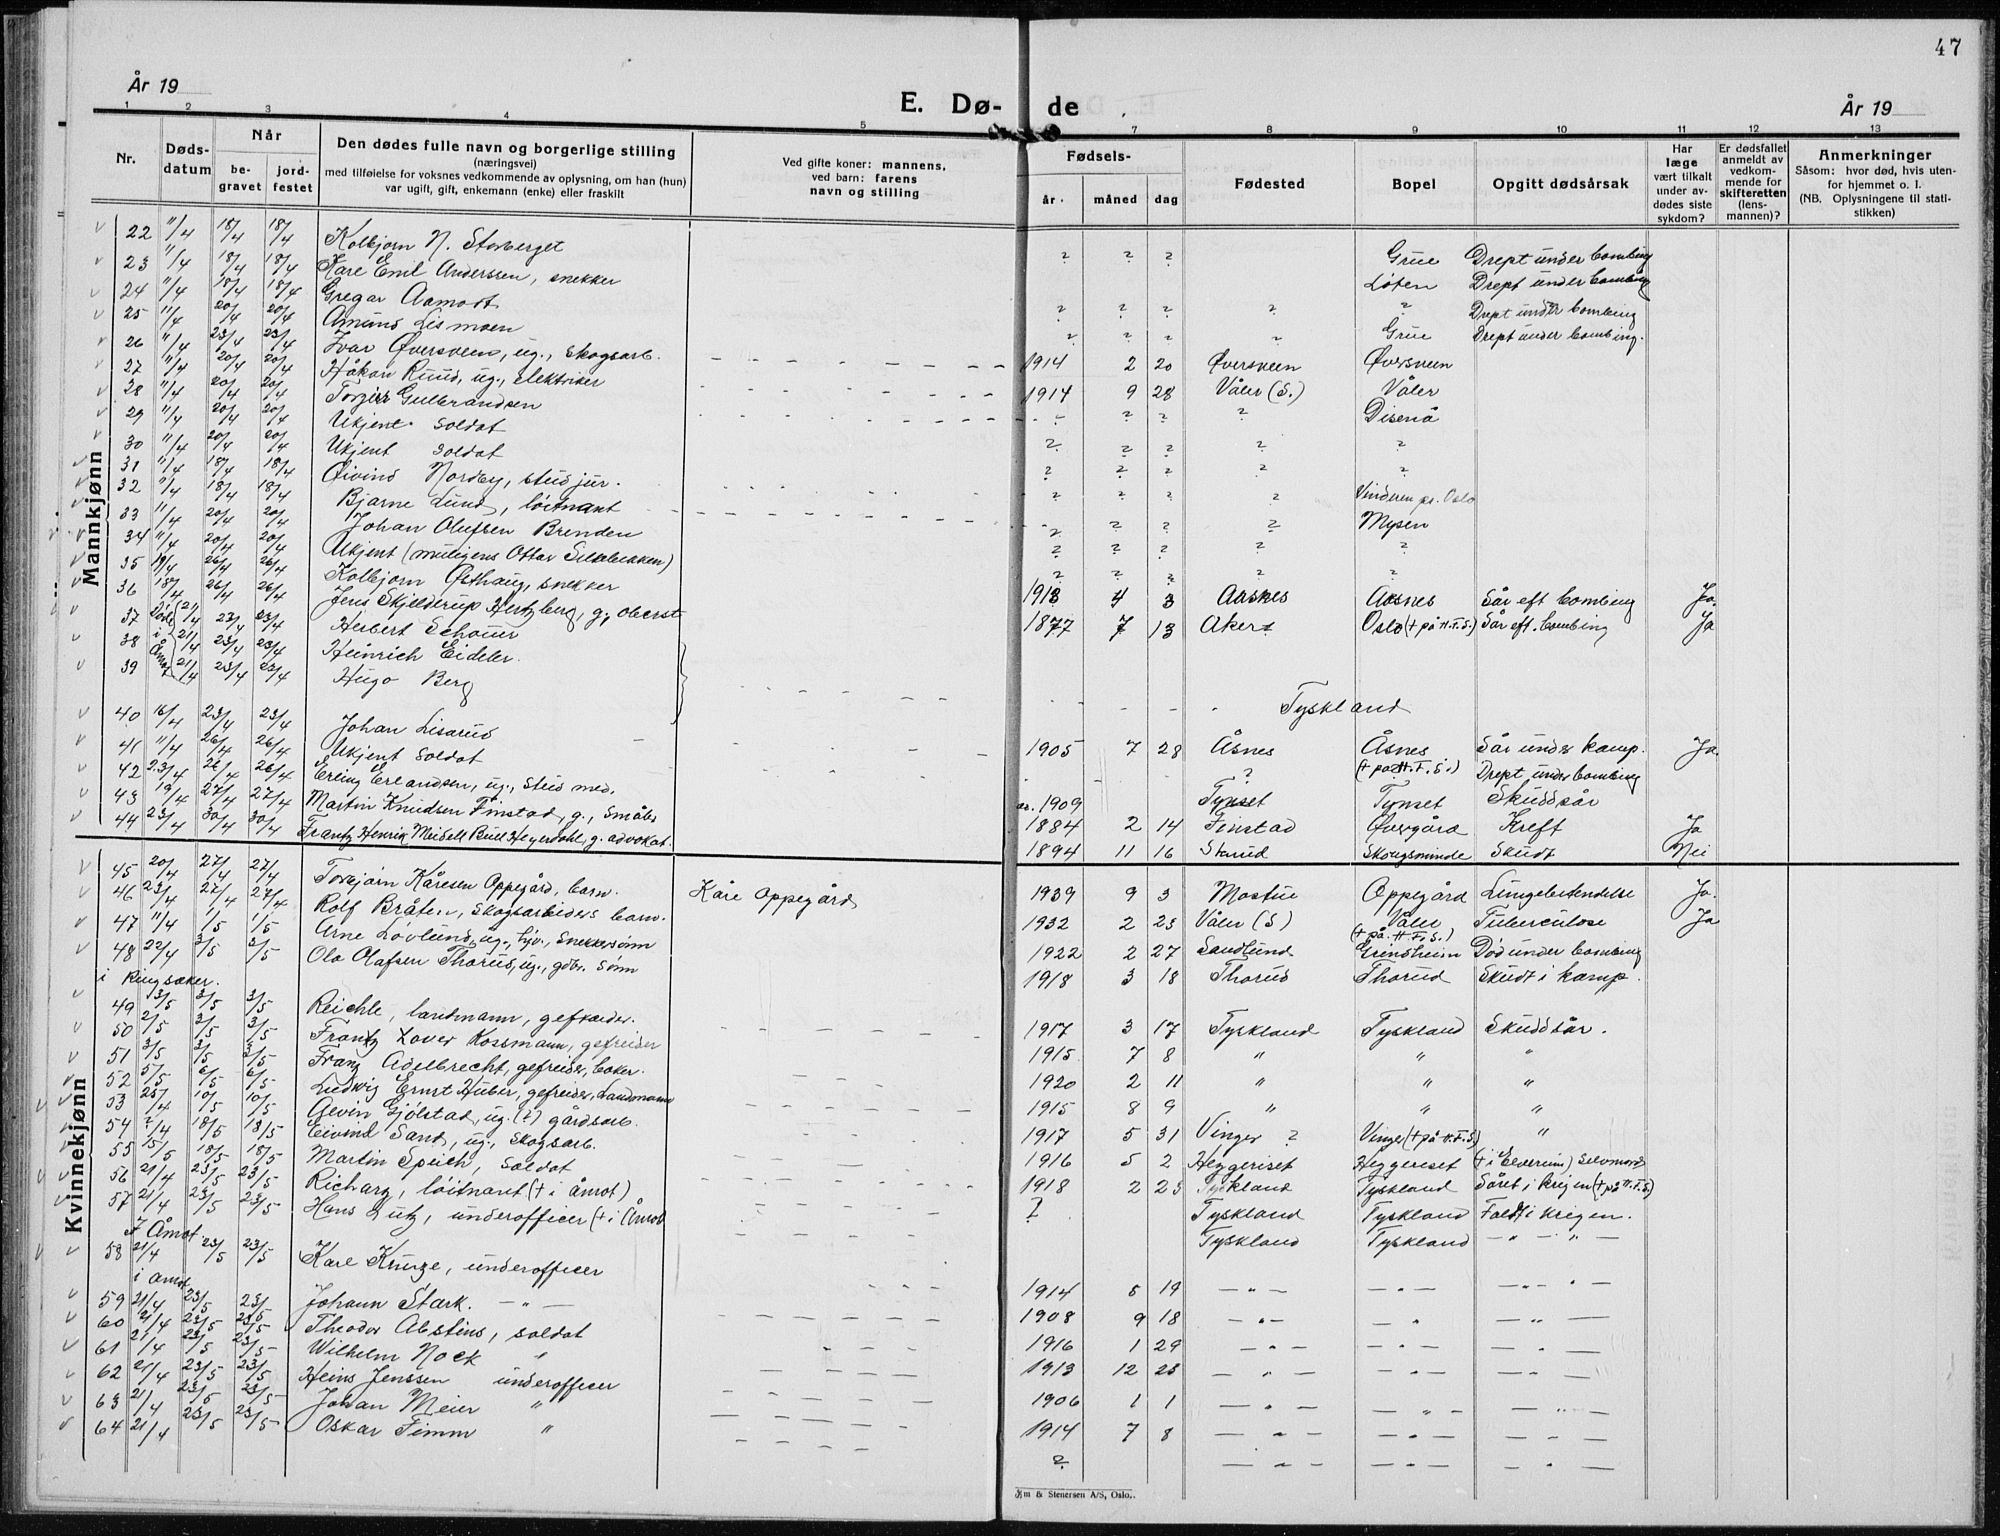 47
År 19
E. Dø-de
År 19
1 2 3 4 5 7 8 9 10 11 12 13
Nr.
Døds-datum
Når
be-gravet
jord-festet
Den dødes fulle navn og borgerlige stilling
(næringsvei)
med tilføielse for voksnes vedkommende av oplysning, om han (hun)
var ugift, gift, enkemann (enke) eller fraskilt
Ved gifte koner: mannens,
ved barn: farens
navn og stilling
Fødsels-
år
måned
dag
Fødested
Bopel
Opgitt dødsårsak
Har
læge
vært tilkalt
under av-
dødes siste
sykdom?
Er dødsfallet
anmeldt av
vedkom-
mende for
skifteretten
(lens-
mannen)?
Anmerkninger
Såsom: hvor død, hvis uten-
for hjemmet o. l.
(NB. Oplysningene til stati-
stikken)
Mannkjønn
22 11/4 18/4 18/4 Kolbjørn N. Storberget ? ? ? Grue Drept under bombing
23 11/4 18/4 18/4 Kåre Emil Anderssen, snekker Løten Drept under bombing
24 11/4 18/4 18/4 Gregar Aamodt ? ? ? ? ? Drept under bombing
25 11/4 20/4 20/4 Amund Lismoen ? ? ? Grue Drept under bombing.
26 11/4 23/4 23/4 Ivar Øversveen, ug., skogsarb. 1914 2 20 Øversveen Øversveen
27 11/4 20/4 20/4 Håkon Ruud, ug., elektriker 1914 9 28 Våler (S.) Våler
28 11/4 20/4 20/4 Torgeir Gulbrandsen ? ? ? Disenå
29 11/4 20/4 20/4 Ukjent soldat ? ? ? ? ?
30 11/4 20/4 20/4 Ukjent soldat ? ? ? ? ?
31 11/4 18/4 18/4 Øivind Nordby, stud jur. ? ? ? ? Vinderen pr. Oslo
32 11/4 18/4 18/4 Bjarne Lund, løitnant ? ? ? ? Mysen
33 11/4 20/4 20/4 Johan Olufsen Brenden ? ? ? ? ?
34 11/4 20/4 20/4 Ukjent (muligens Ottar ) ? ? ? ? ?
35 19/4 26/4 26/4 Kolbjørn Østhaug, snekker 1913 4 3 Aasnes Aasnes Sår eft bombing Ja.
36 18/4 26/4 26/4 Jens Skjelderup Hertzberg, g., oberst 1877 7 13 Aker Oslo (+ på H.F.S.) Sår eft. bombing Ja
37 Døde i Åmot 21/4 23/4 23/4 Herbert
38 21/4 23/4 23/4 Heinrich Eideler.
39 21/4 23/4 23/4 Hugo Berg
Tyskland
40 16/4 23/4 23/4 Johan Lisarud 1905 7 28 Åsnes Åsnes (+ på H.F.S.) Sår under kamp. Ja.
41 11/4 26/4 26/4 Ukjent soldat ? ? Drept under bombing
42 23/4 26/4 26/4 Erling Erlandsen, ug., stud med. 1909 Tynset Tynset Skuddsår
43 19/4 27/4 27/4 Martin Knudsen Finstad, g., småbr. 1884 2 14 Finstad Øvergård Kreft Ja
44 23/4 30/4 30/4 Frantz Henrik Meidell Bull Heyerdahl, g. advokat. 1894 11 16 Skougsminde Skudt Nei
Kvinnekjønn
45 20/4 27/4 27/4 Torbjørn Kåresen Oppegård, barn. Kåre Oppegård 1939 9 3 Mostue Oppegård Lungebetendelse Ja.
46 23/4 27/4 27/4 Rolf Bråten, skogsarbeiders barn. 1932 2 23 Våler (S) Våler (+ på H.F.S.) Tuberculose Ja
47 11/4 1/5 1/5 Arne Løvlund, ug., snekkersønn 1922 2 27 Sandlund Død under bombing
48 22/4 3/5 3/5 Ola Olafsen Thorud, ug., gdbr. sønn 1918 3 18 Thorud Thorud Skudt i kamp.
i Ringsaker.
49 3/5 3/5 3/5 Reichle, landmann, gefreider. 1917 3 17 Tyskland Tyskland Skuddsår.
50 2/5 3/5 3/5 Frantz Xaver Kossmann, gefreider 1915 7 8 " " "
51 3/5 3/5 3/5 Franz Adelbrecht, gefreider, baker. 1920 2 11 " " "
52 5/5 6/5 6/5 Ludwig Ernst Huber, gefreider, Landmann 1915 8 9 " " "
53 25/4 10/5 10/5 Alvin Gjølstad, ug. (?) gårdsarb. 1917 5 31 Vinger ? Vinger (+ på H.F.S) "
54 2/4 18/5 18/5 Eivind Sand, ug., skogsarb. 1916 5 2 Heggeriset Heggeriset (+ i Elverum) Selvmord
55 15/5 18/5 18/5 Martin Speich, soldat 1918 2 23 Tyskland Tyskland Såret i krigen (+ på H.F.S)
56 21/4 23/5 23/5 Richarz, løitnant (+ i Åmot) ? Tyskland Tyskland Faldt i krigen.
57 21/4 23/5 23/5 Hans Lutz, underofficer (+ i Åmot Tyskland Tyskland — " — " —
I Åmot.
58 21/4 23/5 23/5 Karl Kunze, underofficer 1914 5 19 — " — — " — — " — " —
i Åmot
59 21/4 23/5 23/5 Johann Stark. — " — 1908 9 18 — " — — " — " —
60 21/4 23/5 23/5 Theodor Abstins, soldat 1916 1 29 — " — — " — — " —
61 21/4 23/5 23/5 Wilhelm Nock " 1913 12 23 — " — — " — — " —
62 21/4 23/5 23/5 Heins Jenssen underofficer 1906 1 1 — " — — " — — " —
63 21/4 23/5 23/5 Johan Meier " 1914 7 8 — " — — " — — " —
64 21/4 23/5 23/5 Oskar Timm " ? — " — — " — — " —
m & Stenersen A/S, Oslo.